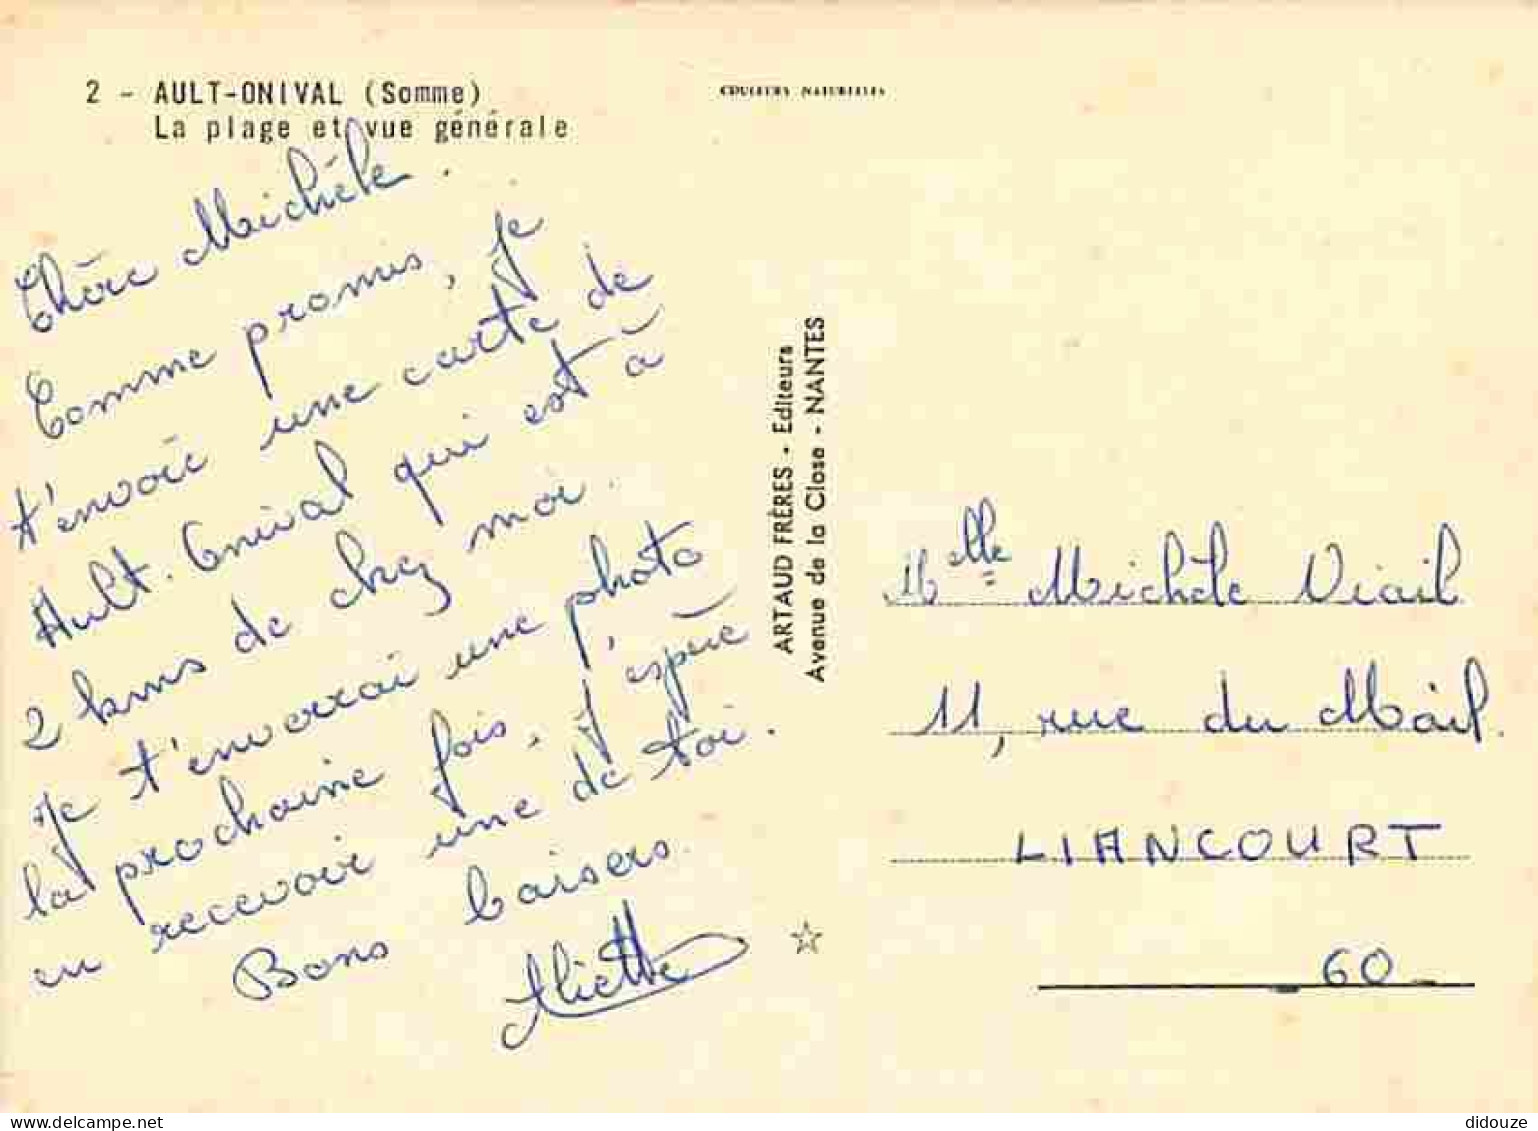 2 - AULT-ONIVAL (Somme)
La plage et vue générale
COULEURS NATURELLES
Chère Michèle.
Comme promis, je
t'envoie une carte de
Ault. Onival qui est à
2 kms de chez moi.
Je t'enverrai une photo
la prochaine fois, j'espère
en recevoir une de toi.
Bons baisers.
Aliette
ARTAUD FRÈRES - Editeurs
Avenue de la Close - NANTES
Melle Michèle Viail
11, rue du Mail.
LIANCOURT
- 60 -
delcampe.net
didouze